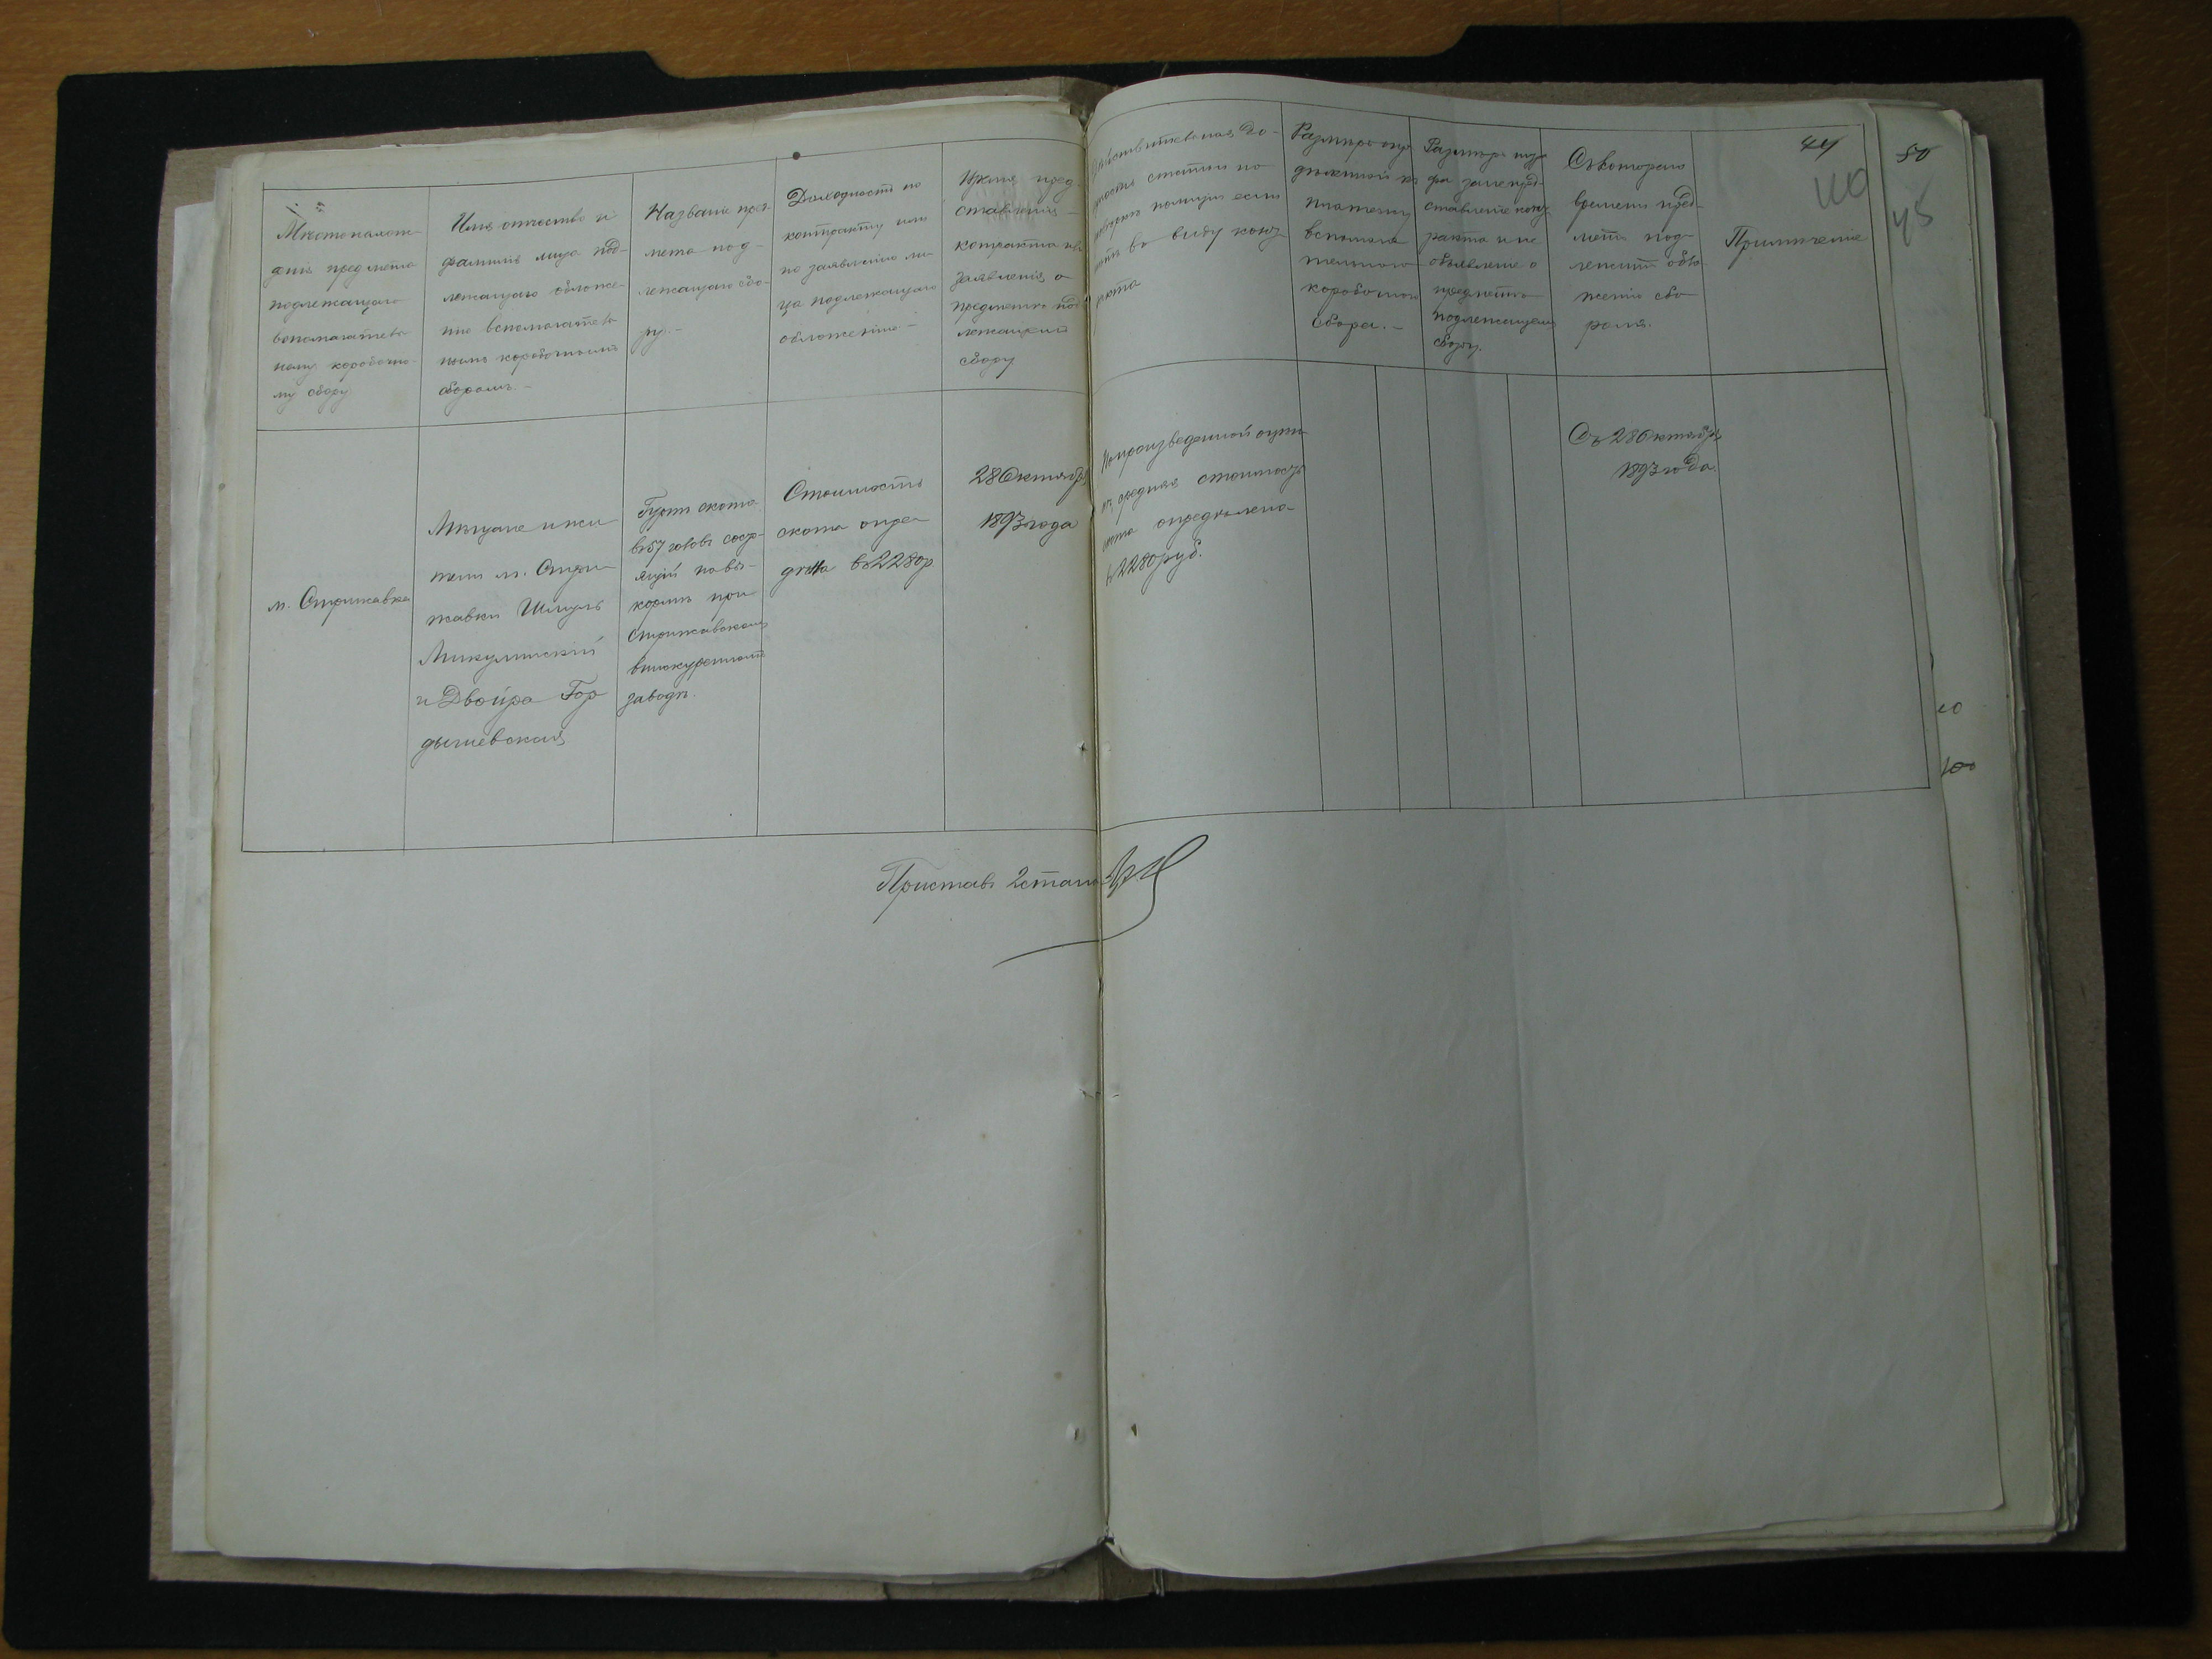 Мѣстонахож-
денія предмета
подлежащаго
вспомагатель
ному коробочно-
му сбору
Имя отчество и
фамилія лица под-
лежащаго обложе-
нію вспомагатель
нымъ коробочнымъ
сборомъ. -
Названіе пред-
мета под-
лежащаго сбо-
ру. -
Доходность по
контракту или
по заявленію ли-
ца подлежащаго
обложенію. -
Время пред-
ставленія
контракта или
заявленія о
предметѣ под
лежащемъ
сбору
Дѣйствительная до-
ходность статьи по
полиціи если
въ виду конт
ракта
Размѣръ опре
дѣленной къ
платежу
вспомога
тельнаго
коробочнаго
сбора. -
Размѣръ штра
фа за непред-
ставленіе конт
ракта и не
объявленіе о
предметѣ
подлежащемъ
сбору.
Съ котораго
времени пред-
метъ под-
лежитъ обло-
женію сбо
ромъ.
Примѣчаніе
44
40
50
45
м. Стрижавка
Мѣщане и жи
тели м. Стри
жавки Шмуль
Микулинскій
и Двойра Гор
дышевская
Гуртъ скота
въ 57 головъ стоя-
ящій на вы-
кормѣ при
Стрижавскомъ
винокуренномъ
заводѣ.
Стоимость
скота опре
дѣлена въ 2280 р
28 Октября
1893 года
По произведенной оцѣн
кѣ средняя стоимость
скота опредѣлена
въ 2280 руб.
Съ 28 Октября
1893 года.
Приставъ 2 стана